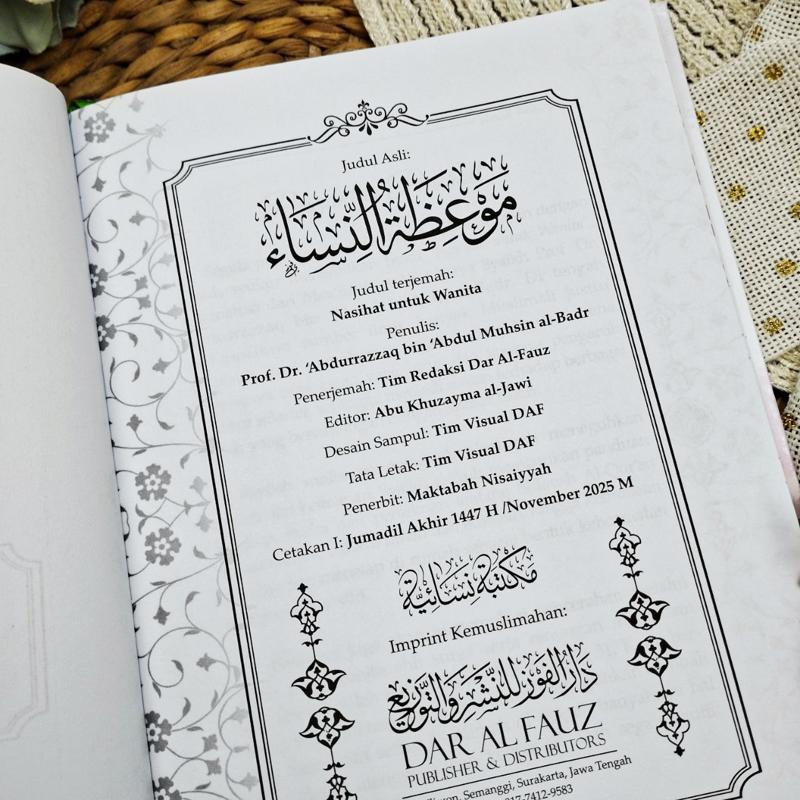 Judul Asli:
مَوْعِظَةُ النِّسَاءِ
Judul terjemah:
Nasihat untuk Wanita
Penulis:
Prof. Dr. ‘Abdurrazzaq bin ‘Abdul Muhsin al-Badr
Penerjemah: Tim Redaksi Dar Al-Fauz
Editor: Abu Khuzayma al-Jawi
Desain Sampul: Tim Visual DAF
Tata Letak: Tim Visual DAF
Penerbit: Maktabah Nisaiyyah
Cetakan I: Jumadil Akhir 1447 H /November 2025 M
مكتبة نسائية
Imprint Kemuslimahan:
دار الفوز للنشر والتوزيع
DAR AL FAUZ
PUBLISHER & DISTRIBUTORS
Semanggi, Surakarta, Jawa Tengah
7412-9583